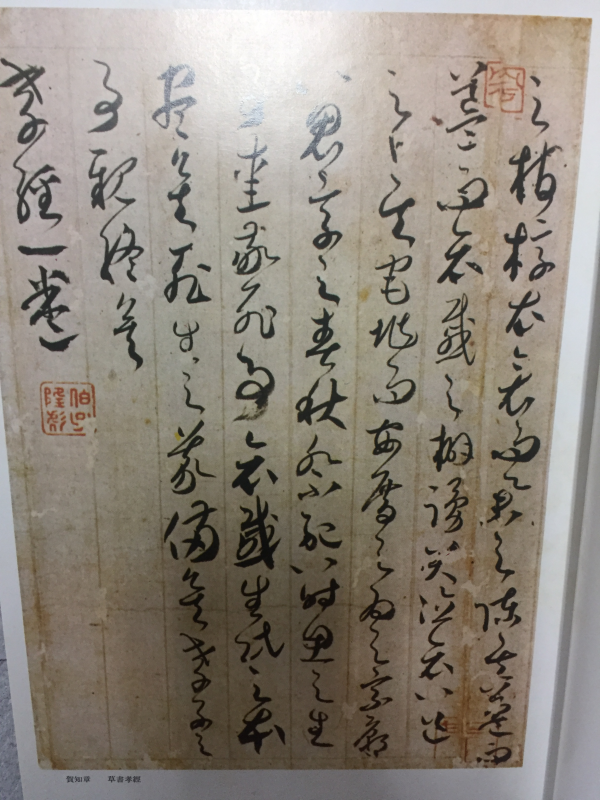 之棺椁衣衾而舉之陳其
而哀慼之擗踊哭泣哀以送
之卜其宅兆而安厝之為之宗廟
以鬼享之春秋祭祀以時思之生
事愛敬死事哀慼生民之本
盡矣死生之義備矣孝子之
事親終矣
孝經一卷
賀知章 草書孝經